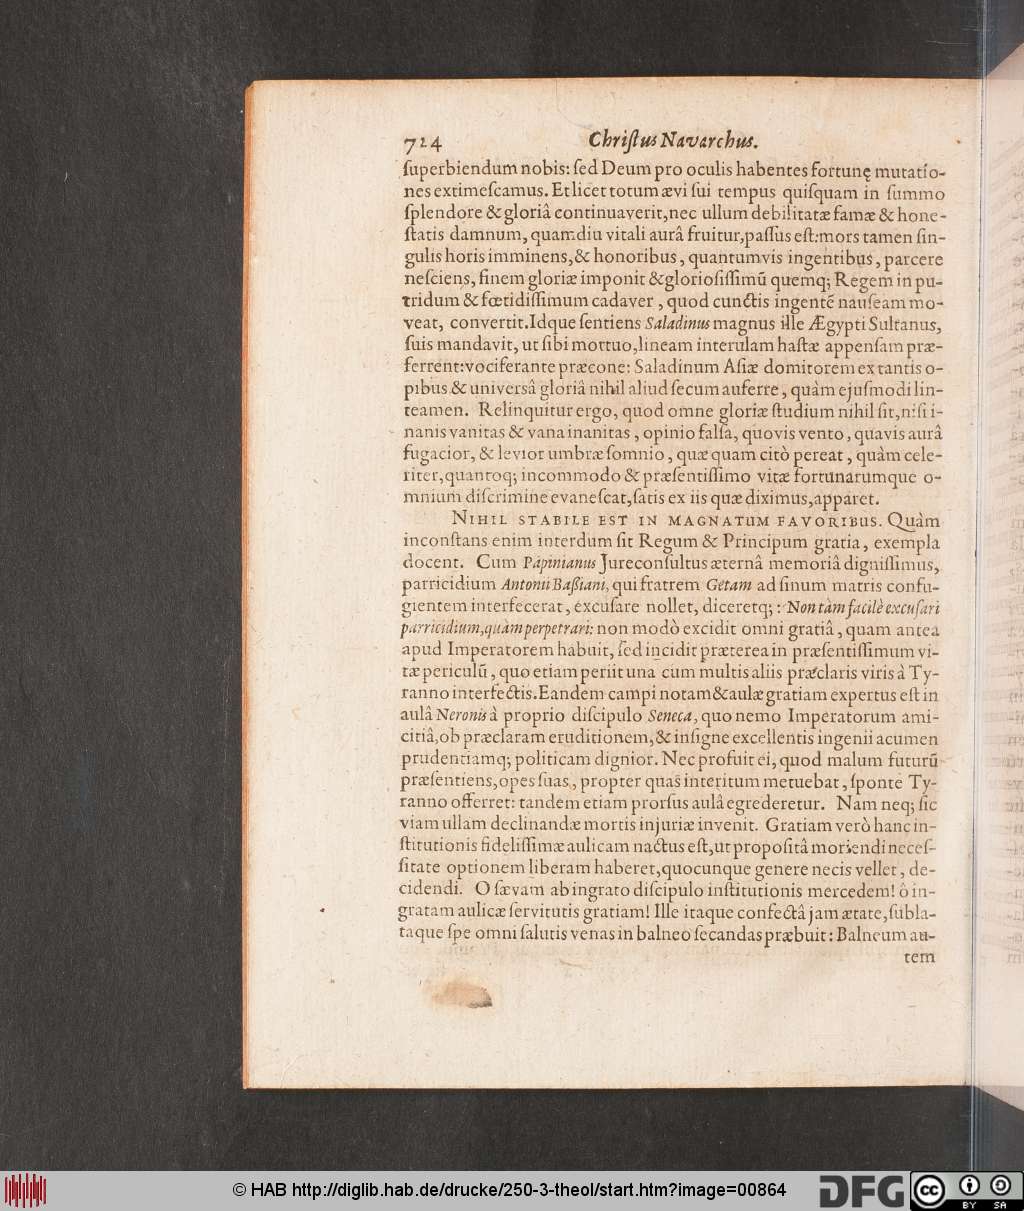 724 Chriſtus Navarchus.
ſuperbiendum nobis: ſed Deum pro oculis habentes fortunę mutatio-
nes extimeſcamus. Et licet totum ævi ſui tempus quiſquam in ſummo
ſplendore & gloriâ continuaverit, nec ullum debilitatæ famæ & hone-
ſtatis damnum, quamdiu vitali aurâ fruitur, paſſus eſt: mors tamen ſin-
gulis horis imminens, & honoribus, quantumvis ingentibus, parcere
neſciens, finem gloriæ imponit & glorioſiſſimū quemq; Regem in pu-
tridum & fœtidiſſimum cadaver, quod cunctis ingentē nauſeam mo-
veat, convertit. Idque ſentiens Saladinus magnus ille Ægypti Sultanus,
ſuis mandavit, ut ſibi mortuo, lineam interulam haſtæ appenſam præ-
ferrent: vociferante præcone: Saladinum Aſiæ domitorem ex tantis o-
pibus & universâ gloriâ nihil aliud ſecum auferre, quàm ejuſmodi lin-
teamen. Relinquitur ergo, quod omne gloriæ ſtudium nihil ſit, niſi i-
nanis vanitas & vana inanitas, opinio falſa, quovis vento, quavis aurâ
fugacior, & levior umbræ ſomnio, quæ quam citò pereat, quàm cele-
riter, quantoq; incommodo & præſentiſſimo vitæ fortunarumque o-
mnium diſcrimine evaneſcat, ſatis ex iis quæ diximus, apparet.
NIHIL STABILE EST IN MAGNATUM FAVORIBUS. Quàm
inconſtans enim interdum ſit Regum & Principum gratia, exempla
docent. Cum Papinianus Jureconſultus æternâ memoriâ digniſſimus,
parricidium Antonii Baßiani, qui fratrem Getam ad ſinum matris confu-
gientem interfecerat, excuſare nollet, diceretq; : Non tàm facilè excuſari
parricidium, quàm perpetrari: non modò excidit omni gratiâ, quam antea
apud Imperatorem habuit, ſed incidit præterea in præſentiſſimum vi-
tæ periculū, quo etiam periit una cum multis aliis præclaris viris à Ty-
ranno interfectis. Eandem campi notam & aulæ gratiam expertus eſt in
aulâ Neronis à proprio diſcipulo Seneca, quo nemo Imperatorum ami-
citiâ, ob præclaram eruditionem, & inſigne excellentis ingenii acumen
prudentiamq; politicam dignior. Nec profuit ei, quod malum futurū
præſentiens, opes ſuas, propter quas interitum metuebat, ſponte Ty-
ranno offerret: tandem etiam prorſus aulâ egrederetur. Nam neq; ſic
viam ullam declinandæ mortis injuriæ invenit. Gratiam verò hanc in-
ſtitutionis fideliſſimæ aulicam nactus eſt, ut propoſitâ moriendi neceſ-
ſitate optionem liberam haberet, quocunque genere necis vellet, de-
cidendi. O ſævam ab ingrato diſcipulo inſtitutionis mercedem! ô in-
gratam aulicæ ſervitutis gratiam! Ille itaque confectâ jam ætate, ſubla-
taque ſpe omni ſalutis venas in balneo ſecandas præbuit: Balneum au-
tem
© HAB http://diglib.hab.de/drucke/250-3-theol/start.htm?image=00864
DFG
cc BY SA